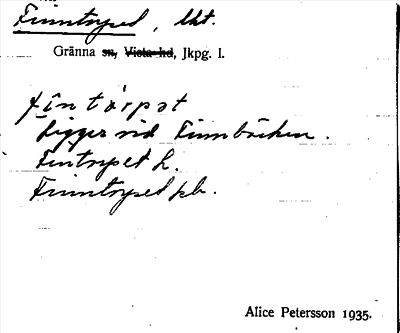 Finntorpet, lht.
Gränna sn, Vista hd, Jkpg. l.
fìntòrpət
Ligger vid Finnbäcken.
Fintorpet h.
Finntorpet pb.
Alice Petersson 1935.